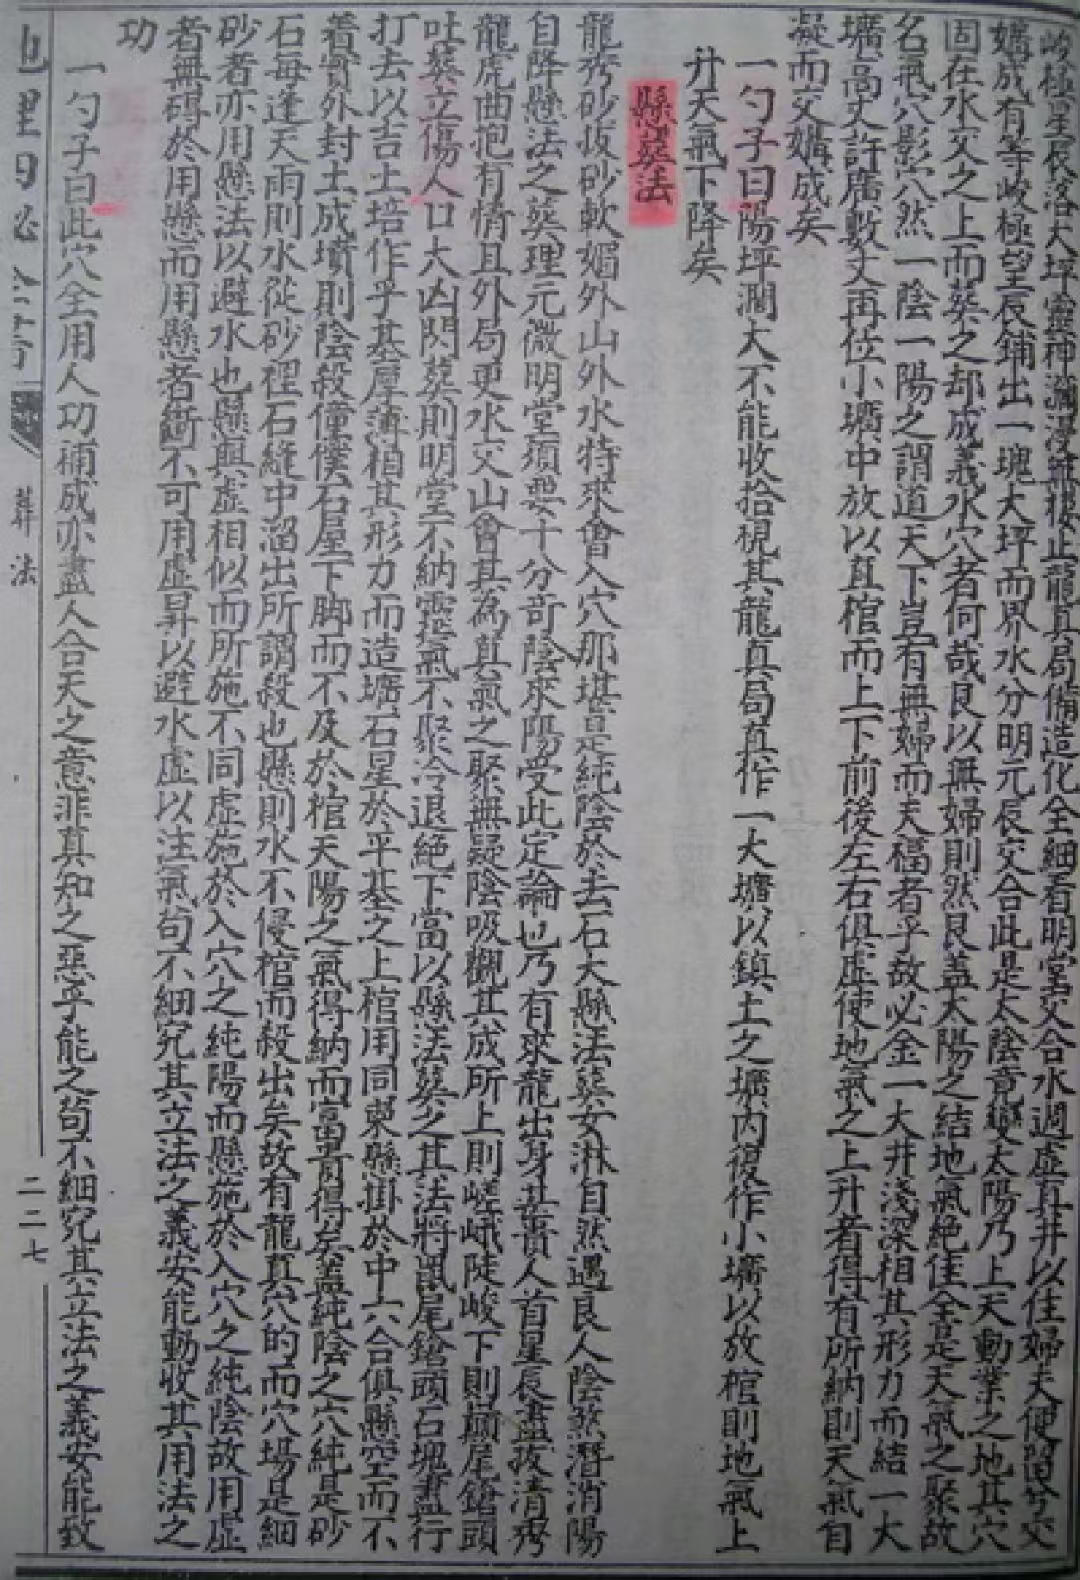 峻極星辰落大坪靈神瀰漫無棲止龍真局備造化全細看明堂交合水週虛真井以住婦夫使閟兮交
媾成有等峻極望辰鋪出一塊大坪而界水分明元辰交合此是太陰竟變太陽乃上天動業之地其穴
固在水交之上而葬之却成義水穴者何哉良以無婦則然艮蓋太陽之結地氣絕住全是天氣之聚故
名氣穴影八然一陰一陽之謂道天下豈有無婦而夫福者乎故必金一大井淺深相其形力而結一大
壙高丈許廣數丈再位小壙中放以真棺而上下前後左右俱虛使地氣之上升者得有所納則天氣自
凝而交媾成矣
一勺子曰陽坪濶大不能收拾視其龍真局真作一大壙以鎮土之壙內復作小壙以放棺則地氣上
升天氣下降矣
懸葬法
龍秀砂拔砂軟媚外山外水特來會入穴那堪是純陰於去石大懸法葬女淋自然遇良人陰煞潛消陽
自降懸法之葬理元微明堂須要十分奇陰來陽受此定論也乃有來龍出身甚貴人首星辰盡拔清秀
龍虎曲抱有情且外局更水交山會其為真氣之聚無疑陰吸觀其成所上則嵯峨陡峻下則攧尾鎗頭
吐葬立傷人口大凶閃葬則明堂不納霊氣不聚冷退絕下當以懸法葬之其法將鼠尾鎗頭石塊盡行
打去以吉土培作乎基厚薄相其形力而造塘石星於平基之上棺用同東懸掛於中六合俱懸空而不
着實外封土成墳則陰殺僅僕石屋下脚而不及於棺天陽之氣得納而富貴得矣蓋純陰之穴純是砂
石每逢天雨則水從砂裡石縫中溜出所謂殺也懸則水不侵棺而殺出矣故有龍真穴的而穴場是細
砂者亦用懸法以避水也懸與虛相似而所施不同虛施於入穴之純陽而懸施於入穴之純陰故用虛
者無碍於用懸而用懸者斷不可用虛昇以避水虛以注氣苟不細究其立法之義安能動收其用法之
功
一勺子曰此穴全用人功補成亦盡人合天之意非真知之惡乎能之苟不細究其立法之義安能致
葬法
二二七